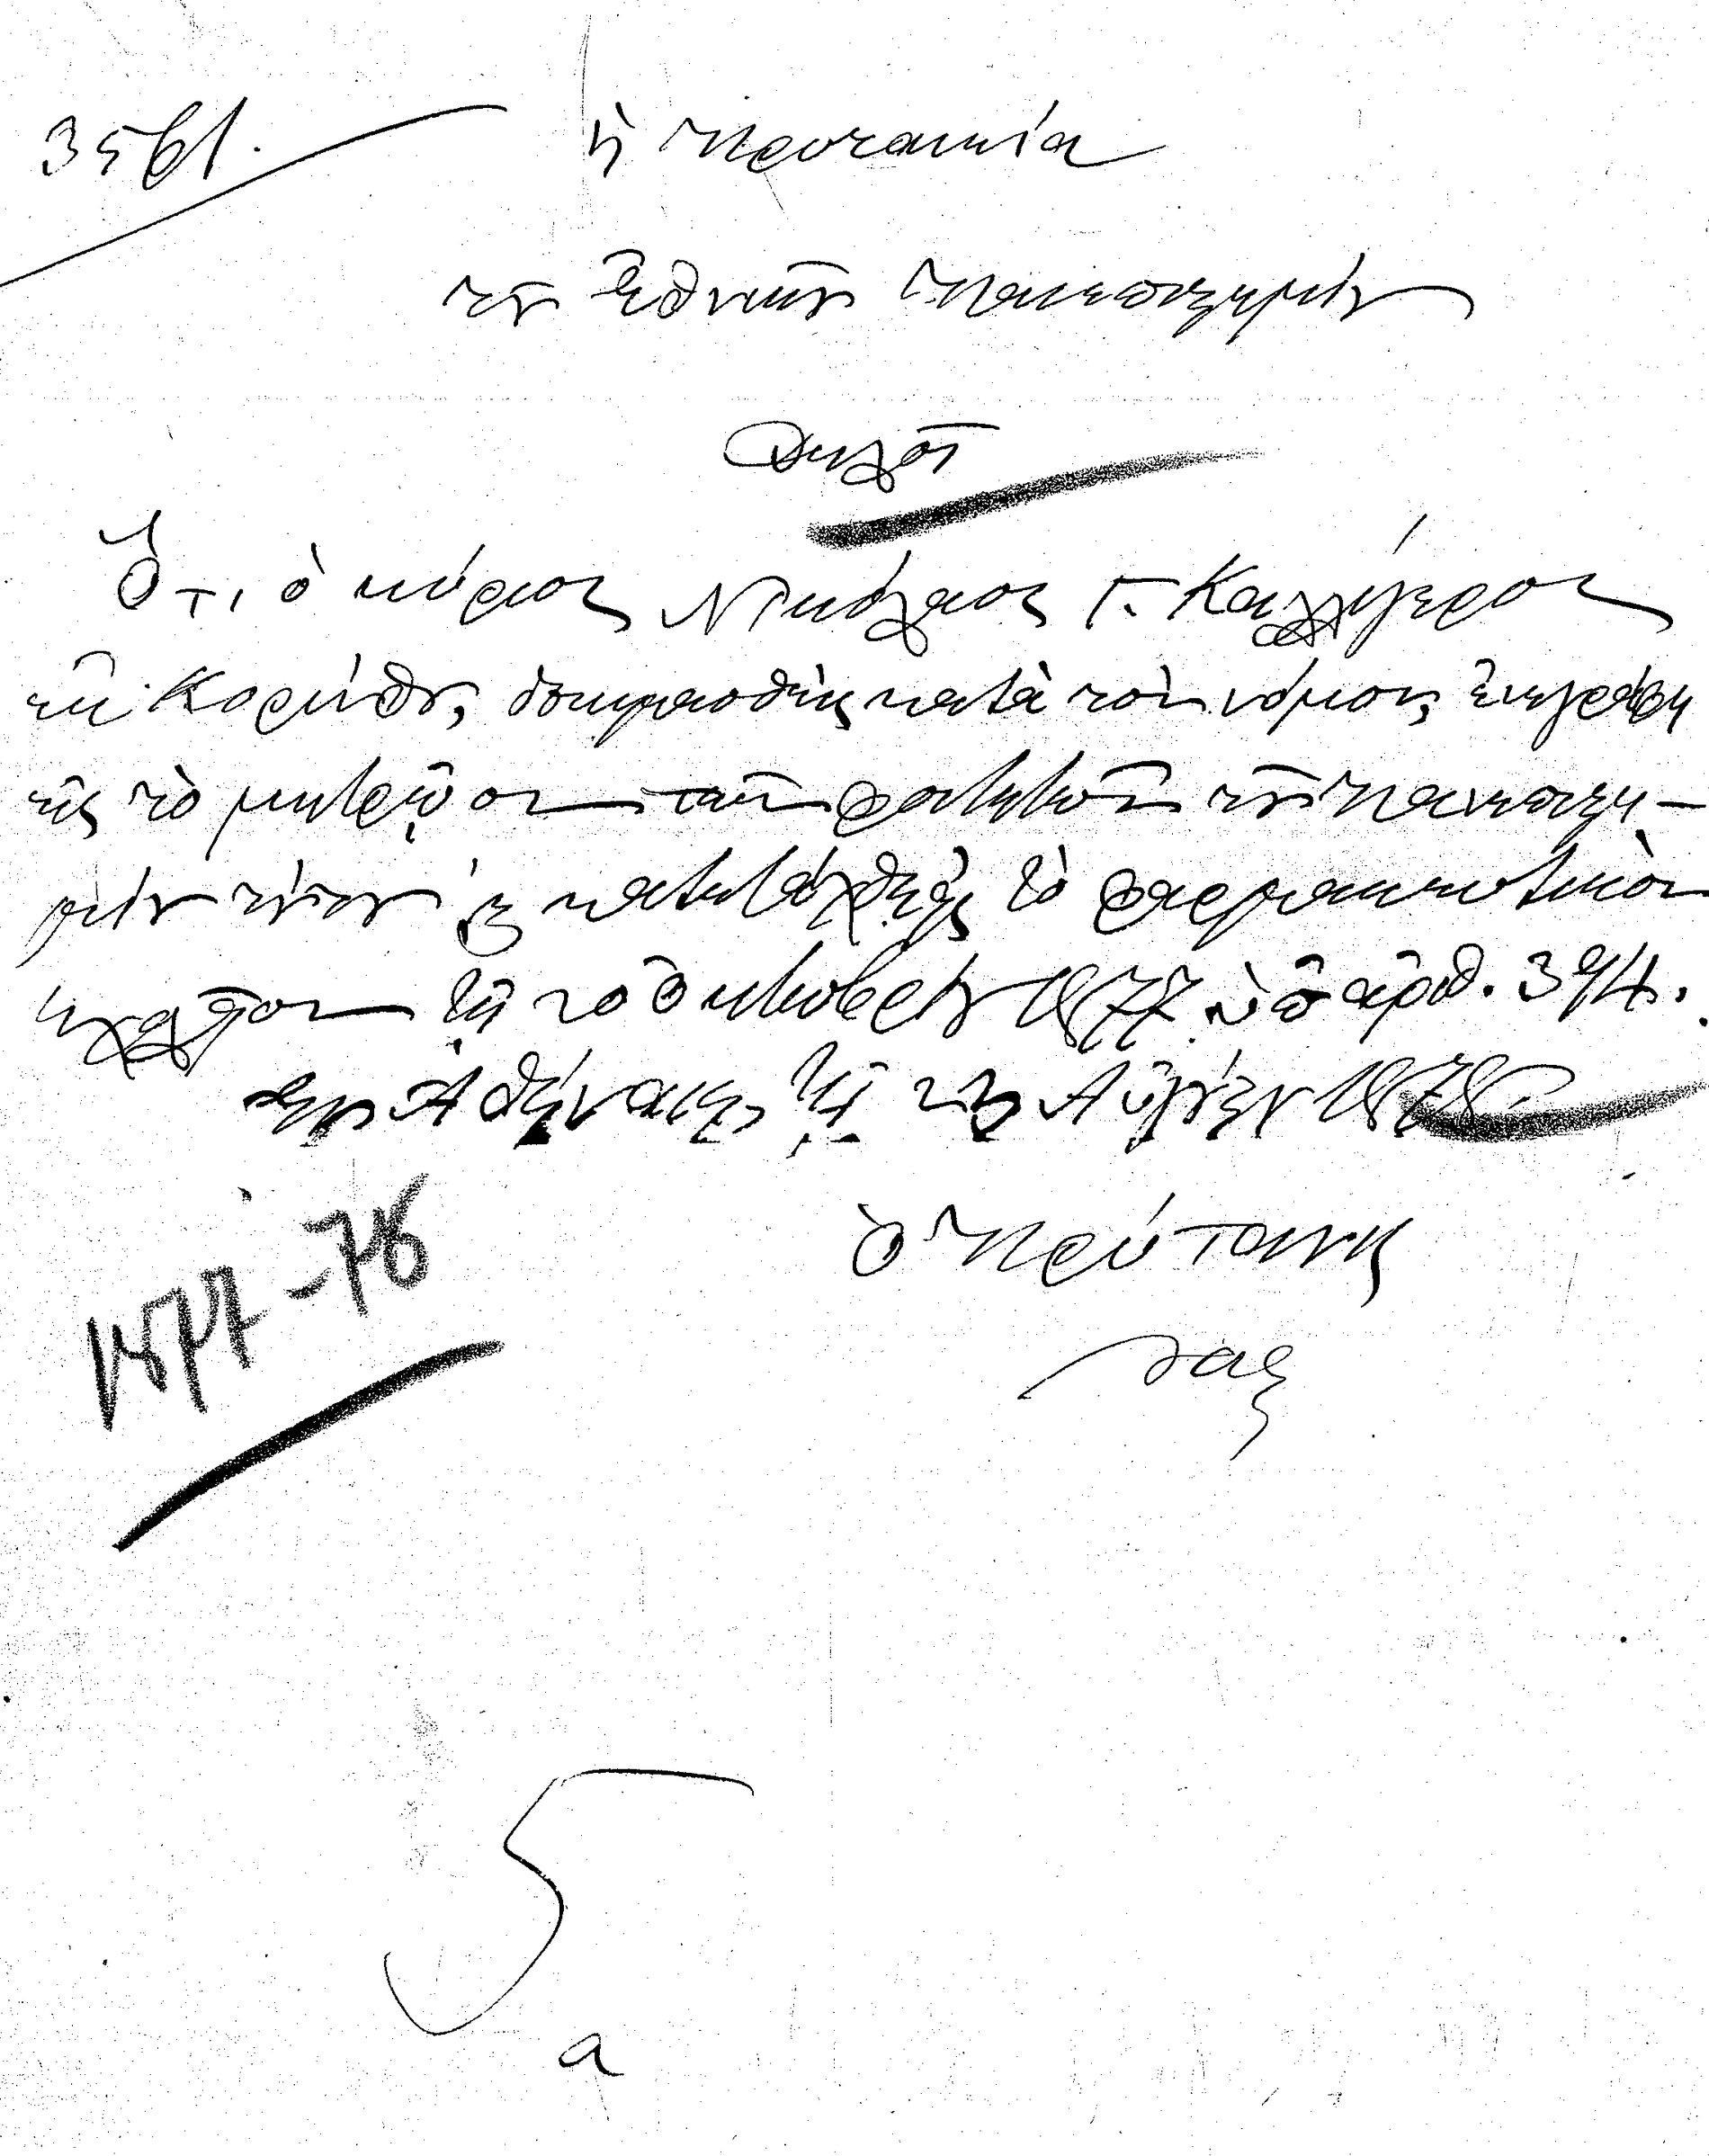 3561.
ἡ Πρυτανεία
τοῦ Ἐθνικοῦ Πανεπιστημίου
Δηλοῖ
Ὅτι ὁ κύριος Νικόλαος Γ. Καλλίγερος
ἐκ Κορίνθου, δοκιμασθεὶς κατὰ τοὺς νόμους ἐνεγράφη
εἰς τὸ μητρῷον τῶν φοιτητῶν τοῦ Πανεπιστη-
μίου τούτου καὶ κατετάχθη εἰς τὸ φαρμακευτικὸν
σχολεῖον τῇ 20 Ὀκτωβρίου 1877 ὑπ' ἀριθ. 394.
Ἐν Ἀθήναις, τῇ 23 Αὐγούστου 1878.
Ὁ Πρύτανις
1877-78
5
α